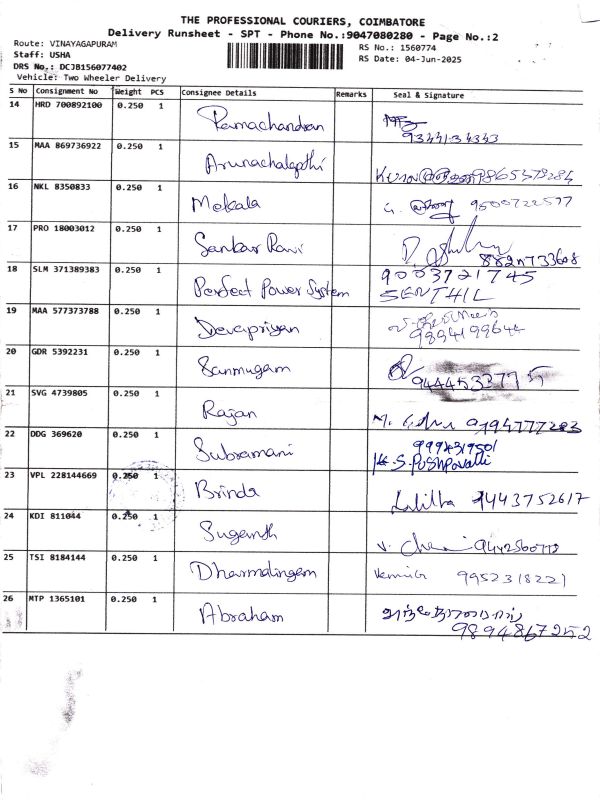 THE PROFESSIONAL COURIERS, COIMBATORE
Delivery Runsheet - SPT - Phone No.:9047080280 - Page No.:2
Route: VINAYAGAPURAM
RS No.: 1560774
Staff: USHA
RS Date: 04-Jun-2025
DRS No.: DCJB156077402
Vehicle: Two Wheeler Delivery
S No Consignment No Weight PCS Consignee Details Remarks Seal & Signature
14 HRD 700892100 0.250 1 Ramachandran
9344134343
15 MAA 869736922 0.250 1 Arunachalapthi
16 NKL 8350833 0.250 1 Mekala 9500722577
17 PRO 18003012 0.250 1 Sankar Ravi
18 SLM 371389383 0.250 1 Perfect Power System 9003721745
SENTHIL
19 MAA 577373788 0.250 1 Devapriyan
9894199644
20 GDR 5392231 0.250 1 Sanmugam
21 SVG 4739805 0.250 1 Rajan
22 DDG 369620 0.250 1 Subramani
S. Pushpavalli
23 VPL 228144669 0.250 1 Brinda Lalitha 9443752617
24 KDI 811044 0.250 1 Suganth
25 TSI 8184144 0.250 1 Dharmalingam 9952318221
26 MTP 1365101 0.250 1 Abraham
9894867252